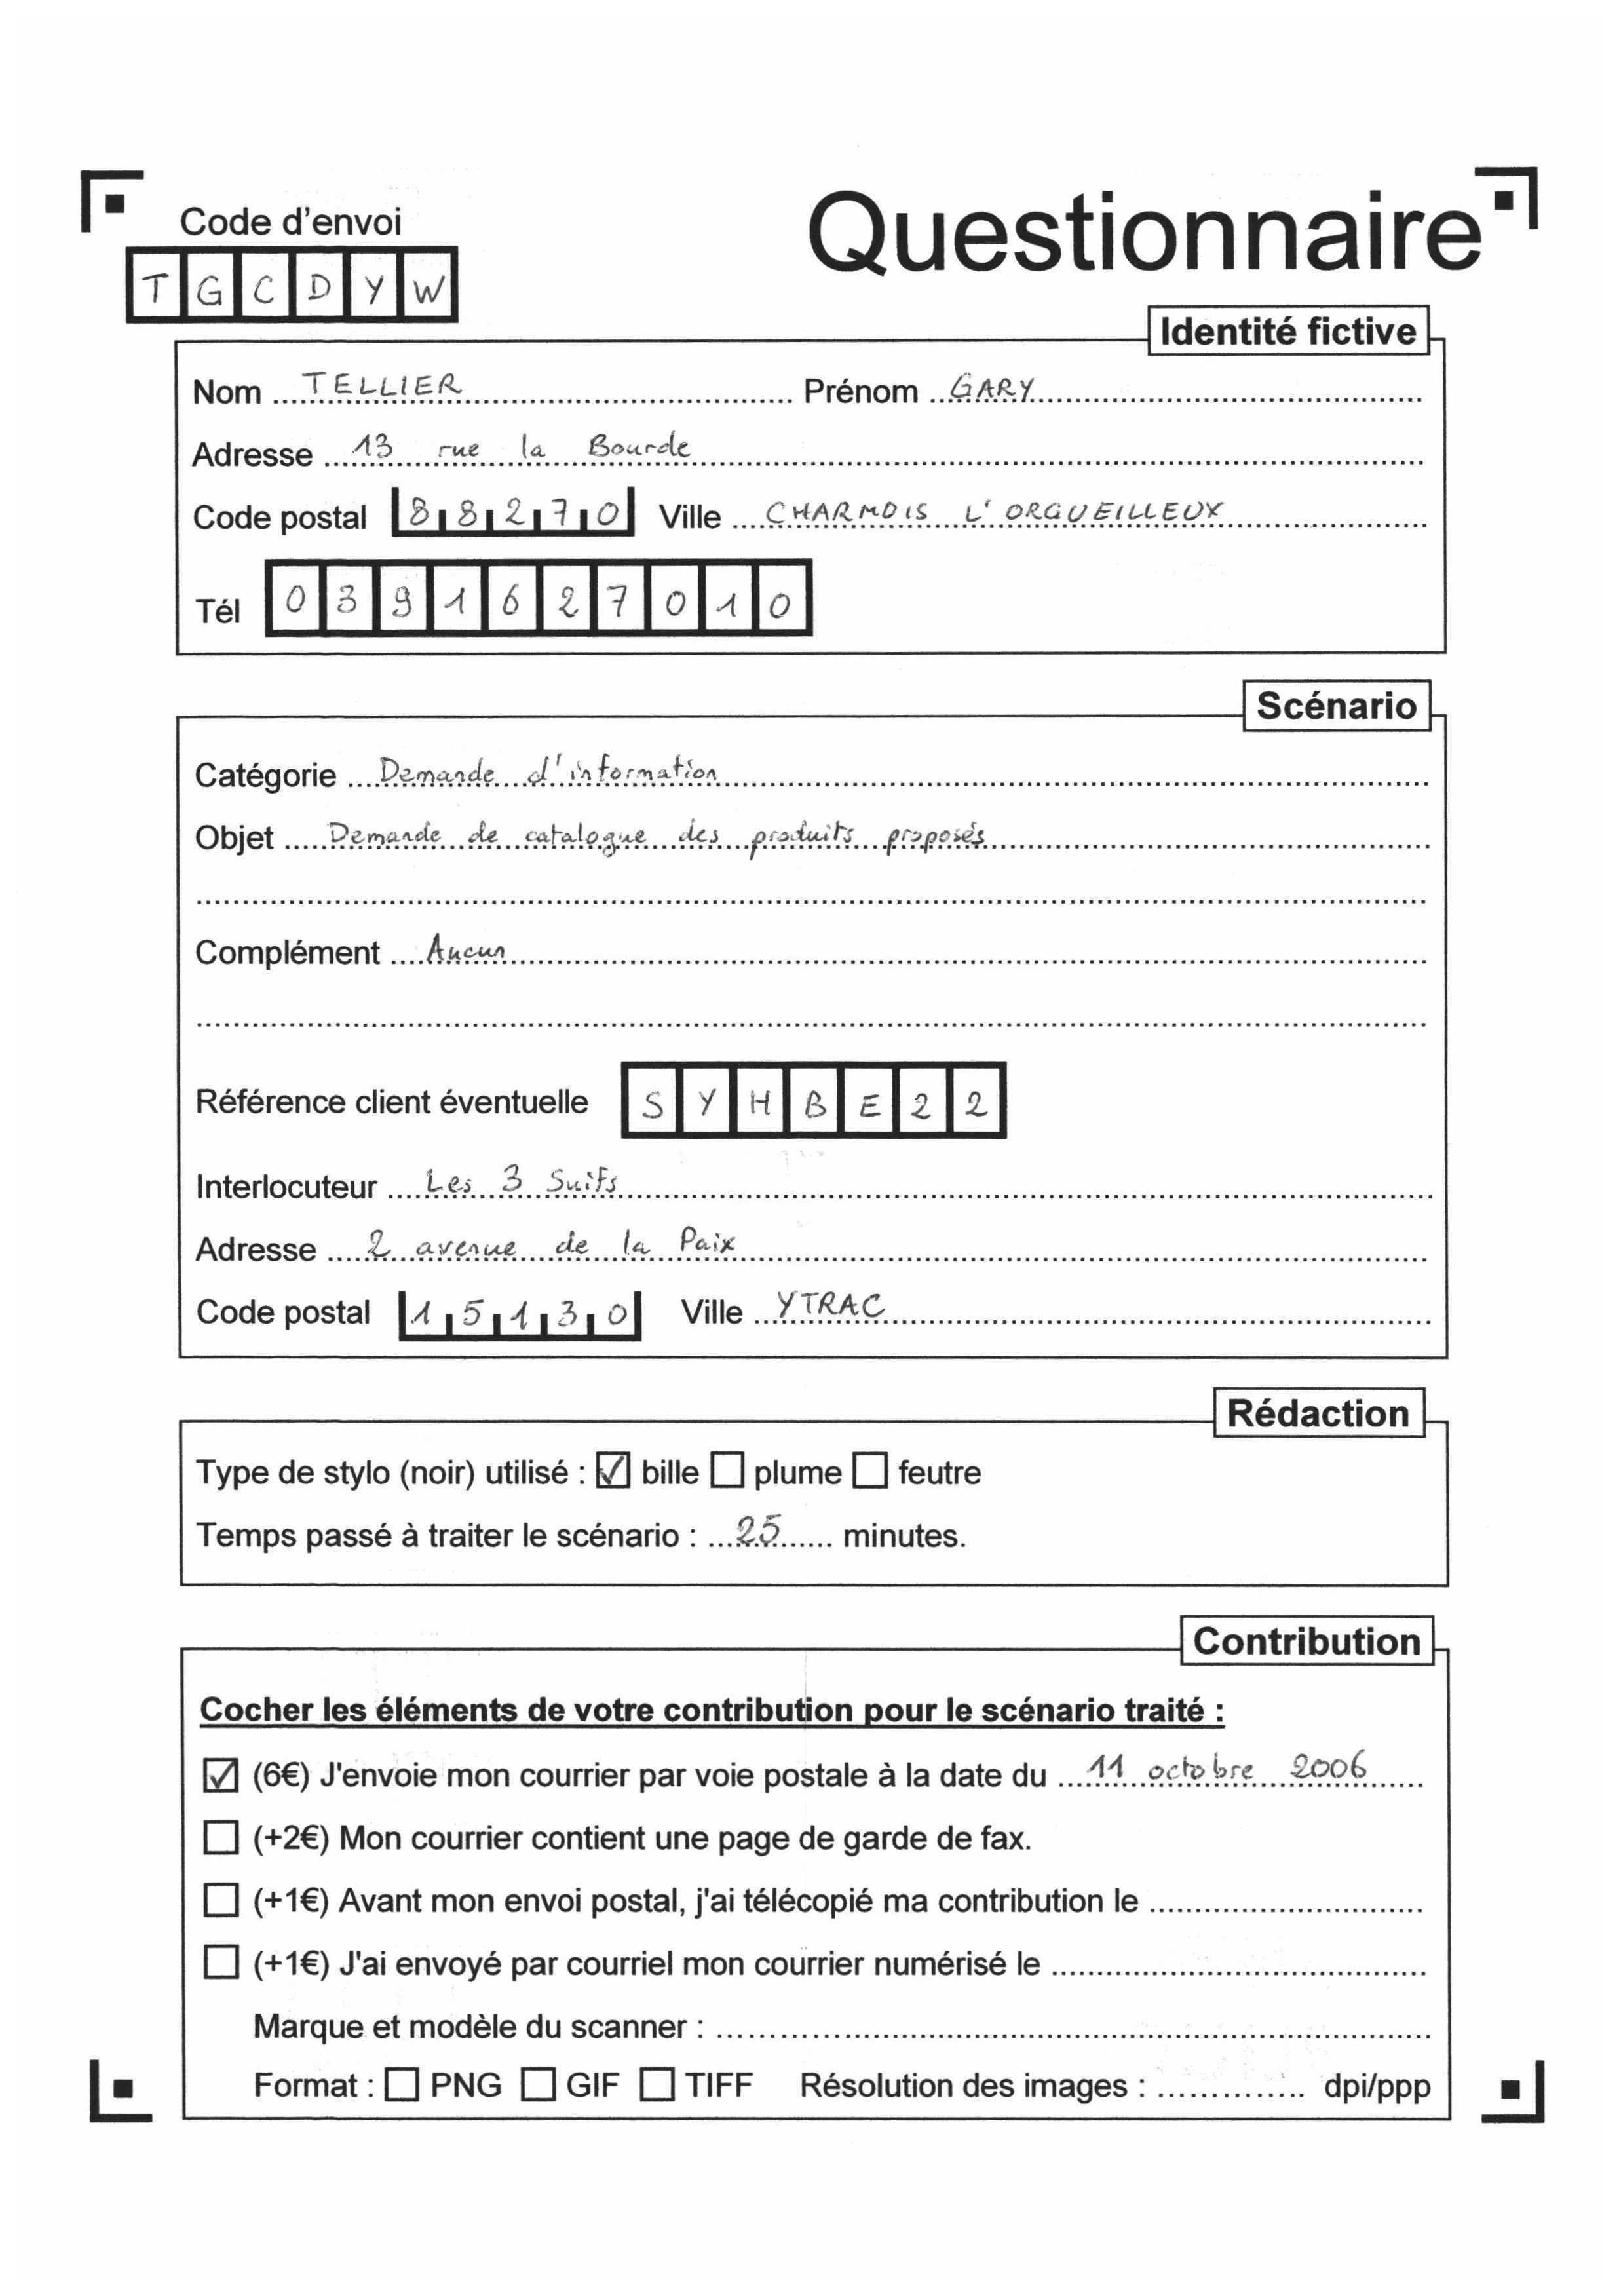 Code d'envoi
Questionnaire
T G C D Y W
Identité fictive
Nom TELLIER Prénom GARY
Adresse 13 rue la Bourde
Code postal 88270 Ville CHARMOIS L'ORGUEILLEUX
Tél 0391627010
Scénario
Catégorie Demande d'information
Objet Demande de catalogue des produits proposés
Complément Aucun
Référence client éventuelle S Y H B E 2 2
Interlocuteur Les 3 Suifs
Adresse 2 avenue de la Paix
Code postal 15130 Ville YTRAC
Rédaction
Type de stylo (noir) utilisé : ☑ bille ☐ plume ☐ feutre
Temps passé à traiter le scénario : 25 minutes.
Contribution
Cocher les éléments de votre contribution pour le scénario traité :
☑ (6€) J'envoie mon courrier par voie postale à la date du 11 octobre 2006
☐ (+2€) Mon courrier contient une page de garde de fax.
☐ (+1€) Avant mon envoi postal, j'ai télécopié ma contribution le
☐ (+1€) J'ai envoyé par courriel mon courrier numérisé le
Marque et modèle du scanner :
Format : ☐ PNG ☐ GIF ☐ TIFF Résolution des images : dpi/ppp